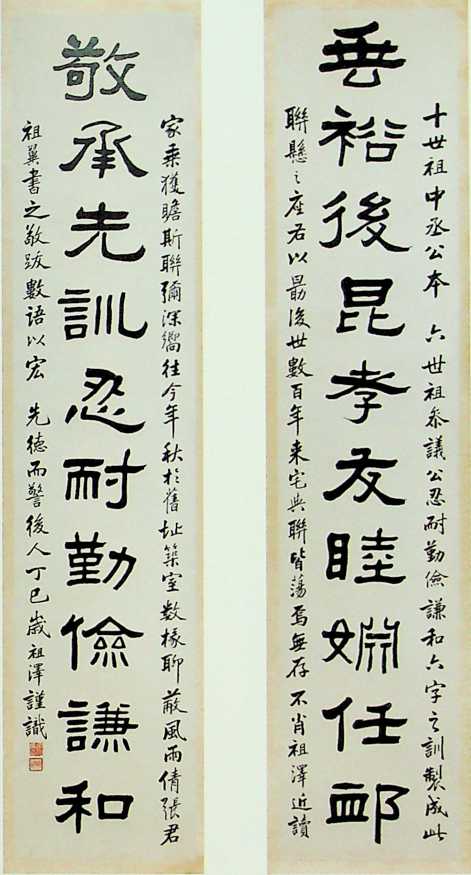 十世祖中丞公本 六世祖參議公忍耐勤儉謙和六字之訓製成此
垂裕後昆孝友睦婣任卹
聯懸之座右以勗後世數百年來宅與聯皆蕩焉無存不肖祖澤近讀
家乘獲瞻斯聯彌深嚮往今年秋於舊址築室數椽聊蔽風雨倩張君
敬承先訓忍耐勤儉謙和
祖翼書之敬跋數語以宏 先德而警後人丁巳歲祖澤謹識